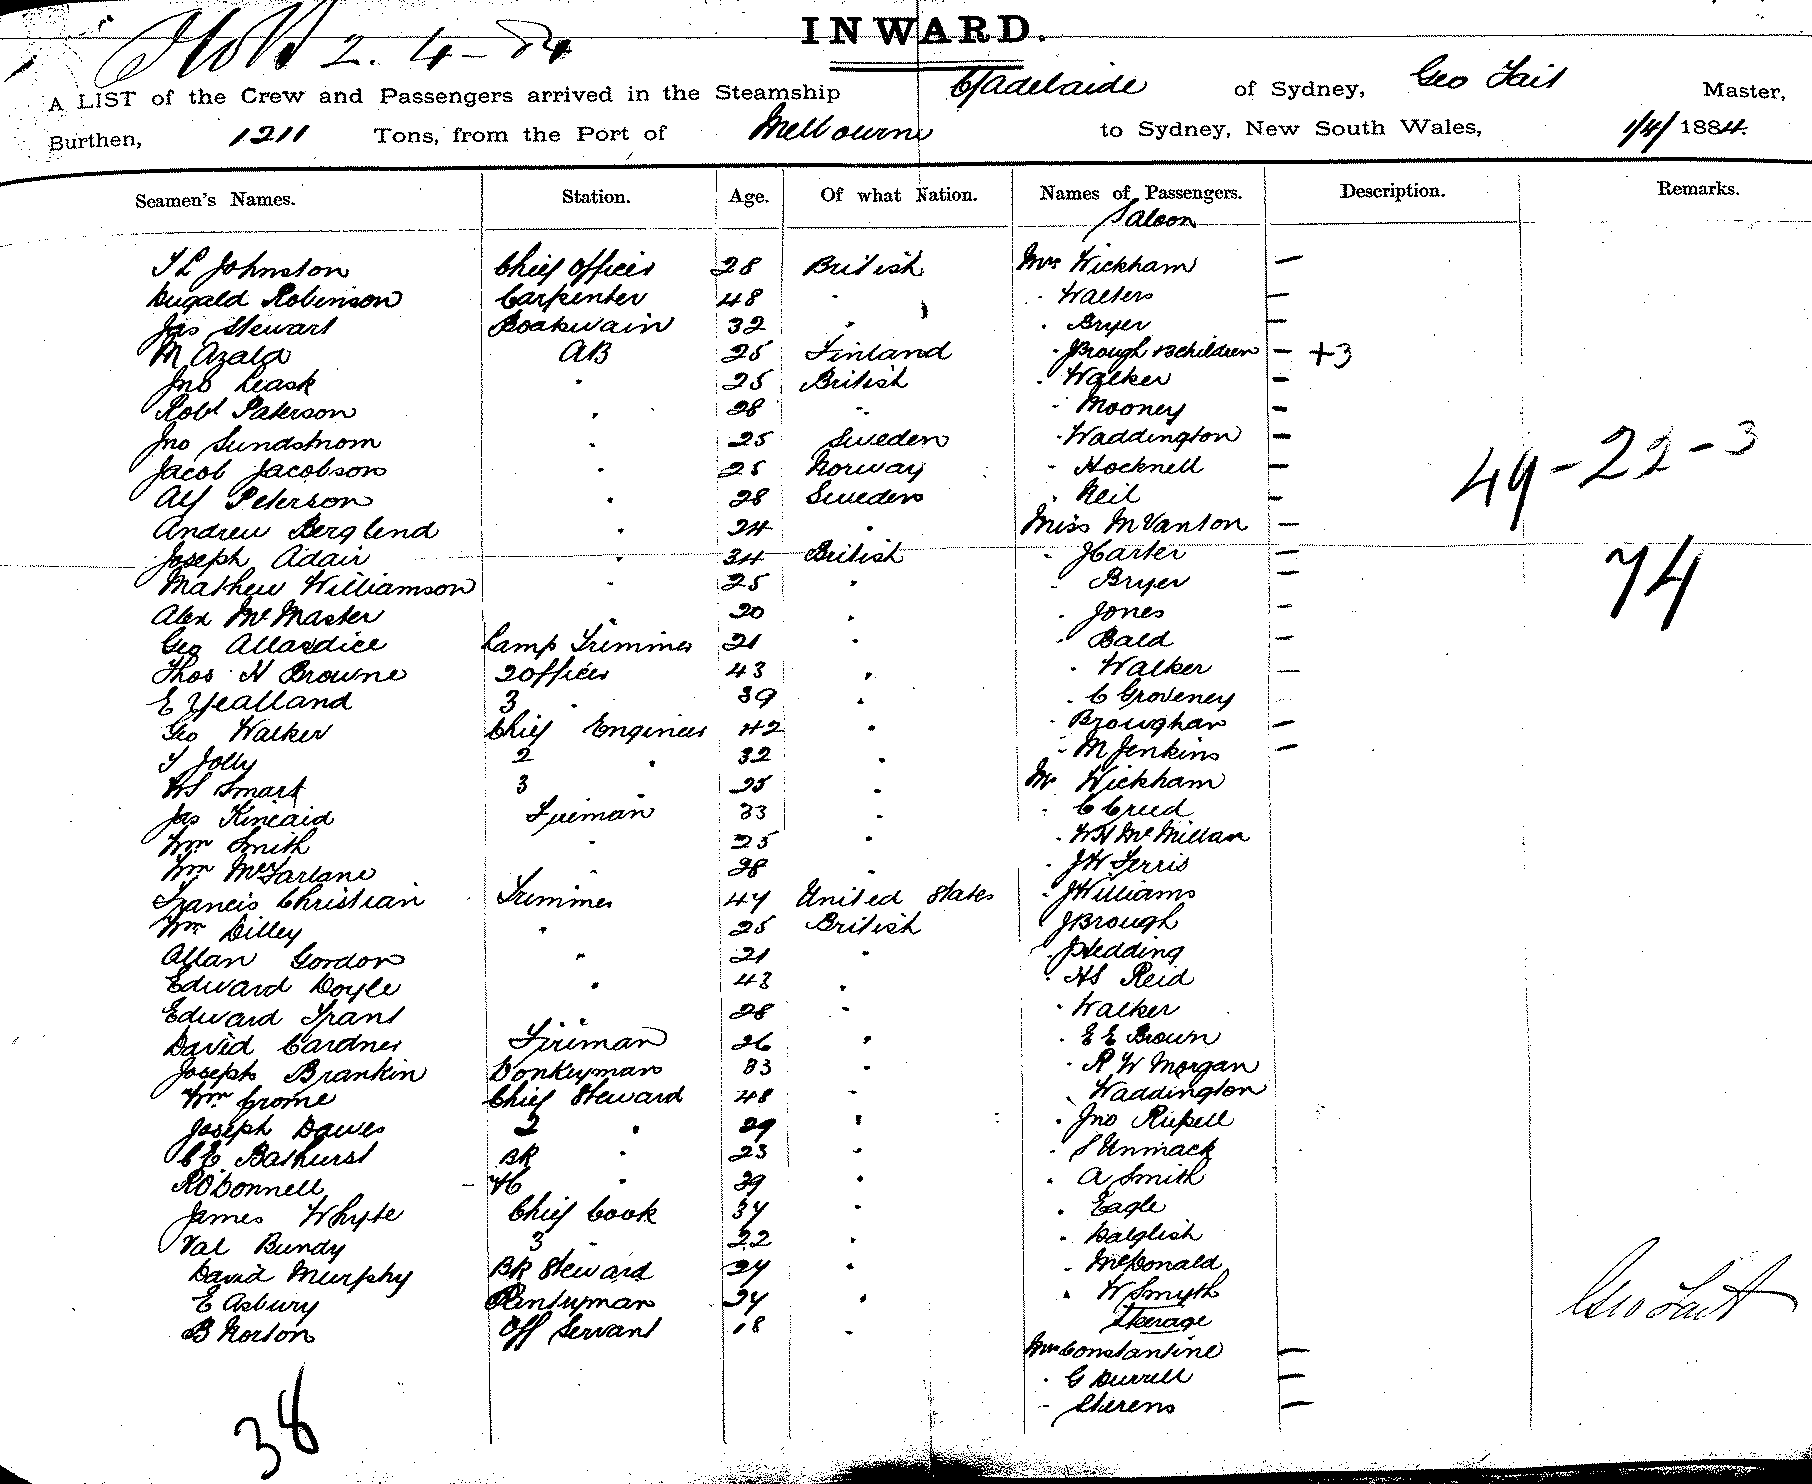 2. 4 - 84
INWARD.
A LIST of the Crew and Passengers arrived in the Steamship Adelaide of Sydney, Geo Tait Master,
Burthen, 1211 Tons, from the Port of Melbourne to Sydney, New South Wales, 1/4/ 1884.
Seamen's Names. Station. Age. Of what Nation. Names of Passengers. Description. Remarks.
Saloon
T L Johnston Chief Officer 28 British Mrs Wickham —
Dugald Robinson Carpenter 48 " " Walters —
Jas Stewart Boatswain 32 " " Bryer —
M Azala AB 25 Finland " J Brough & 3 children — +3
Jno Leask " 25 British " Walker —
Robt Paterson " 28 " " Mooney —
Jno Sundstrom " 25 Sweden " Waddington —
Jacob Jacobson " 25 Norway " Hocknell —
Alf Peterson " 28 Sweden " Neil —
49 - 22 - 3
Andrew Berglend " 24 " Miss M Vanton —
Joseph Adair " 34 British " J Carter —
Mathew Williamson " 25 " " Bryer —
74
Alex McMaster " 20 " " Jones —
Geo Allardice Lamp Trimmer 21 " " Bald —
Thos H Browne 2 Officer 43 " " Walker —
E Yealland 3 " 39 " " C Groveney
Geo Walker Chief Engineer 42 " " Broughan —
T Jolly 2 " 32 " " M Jenkins —
W S Smart 3 " 25 " Mr Wickham
Jas Kincaid Fireman 33 " " C Creed
Wm Smith " 25 " " W H McMillan
Wm McFarlane " 28 " J W Ferris
Francis Christian Trimmer 47 United States " J Williams
Wm Dilley " 25 British J Brough
Allan Gordon " 21 " " J Hedding
Edward Doyle " 43 " " H S Reid
Edward Trant " 28 " " Walker
David Gardner Fireman 26 " " E E Brown
Joseph Brankin Donkeyman 33 " " R W Morgan
Wm Crome Chief Steward 48 " " Waddington
Joseph Dawes 2 " 29 " " Jno Russell
C E Bathurst BR " 23 " " S Unmack
R O'Donnell " 39 " " A Smith
James Whyte Chief Cook 37 " " Eagle
Val Bundy 3 " 22 " " Dalglish
David Murphy BR Steward 27 " " McDonald
E Asbury Pantryman 27 " " W Smyth
Steerage
B Norton Off Servant 18 "
Geo Tait
Mrs Constantine —
" G Durrell —
" Sterens —
38